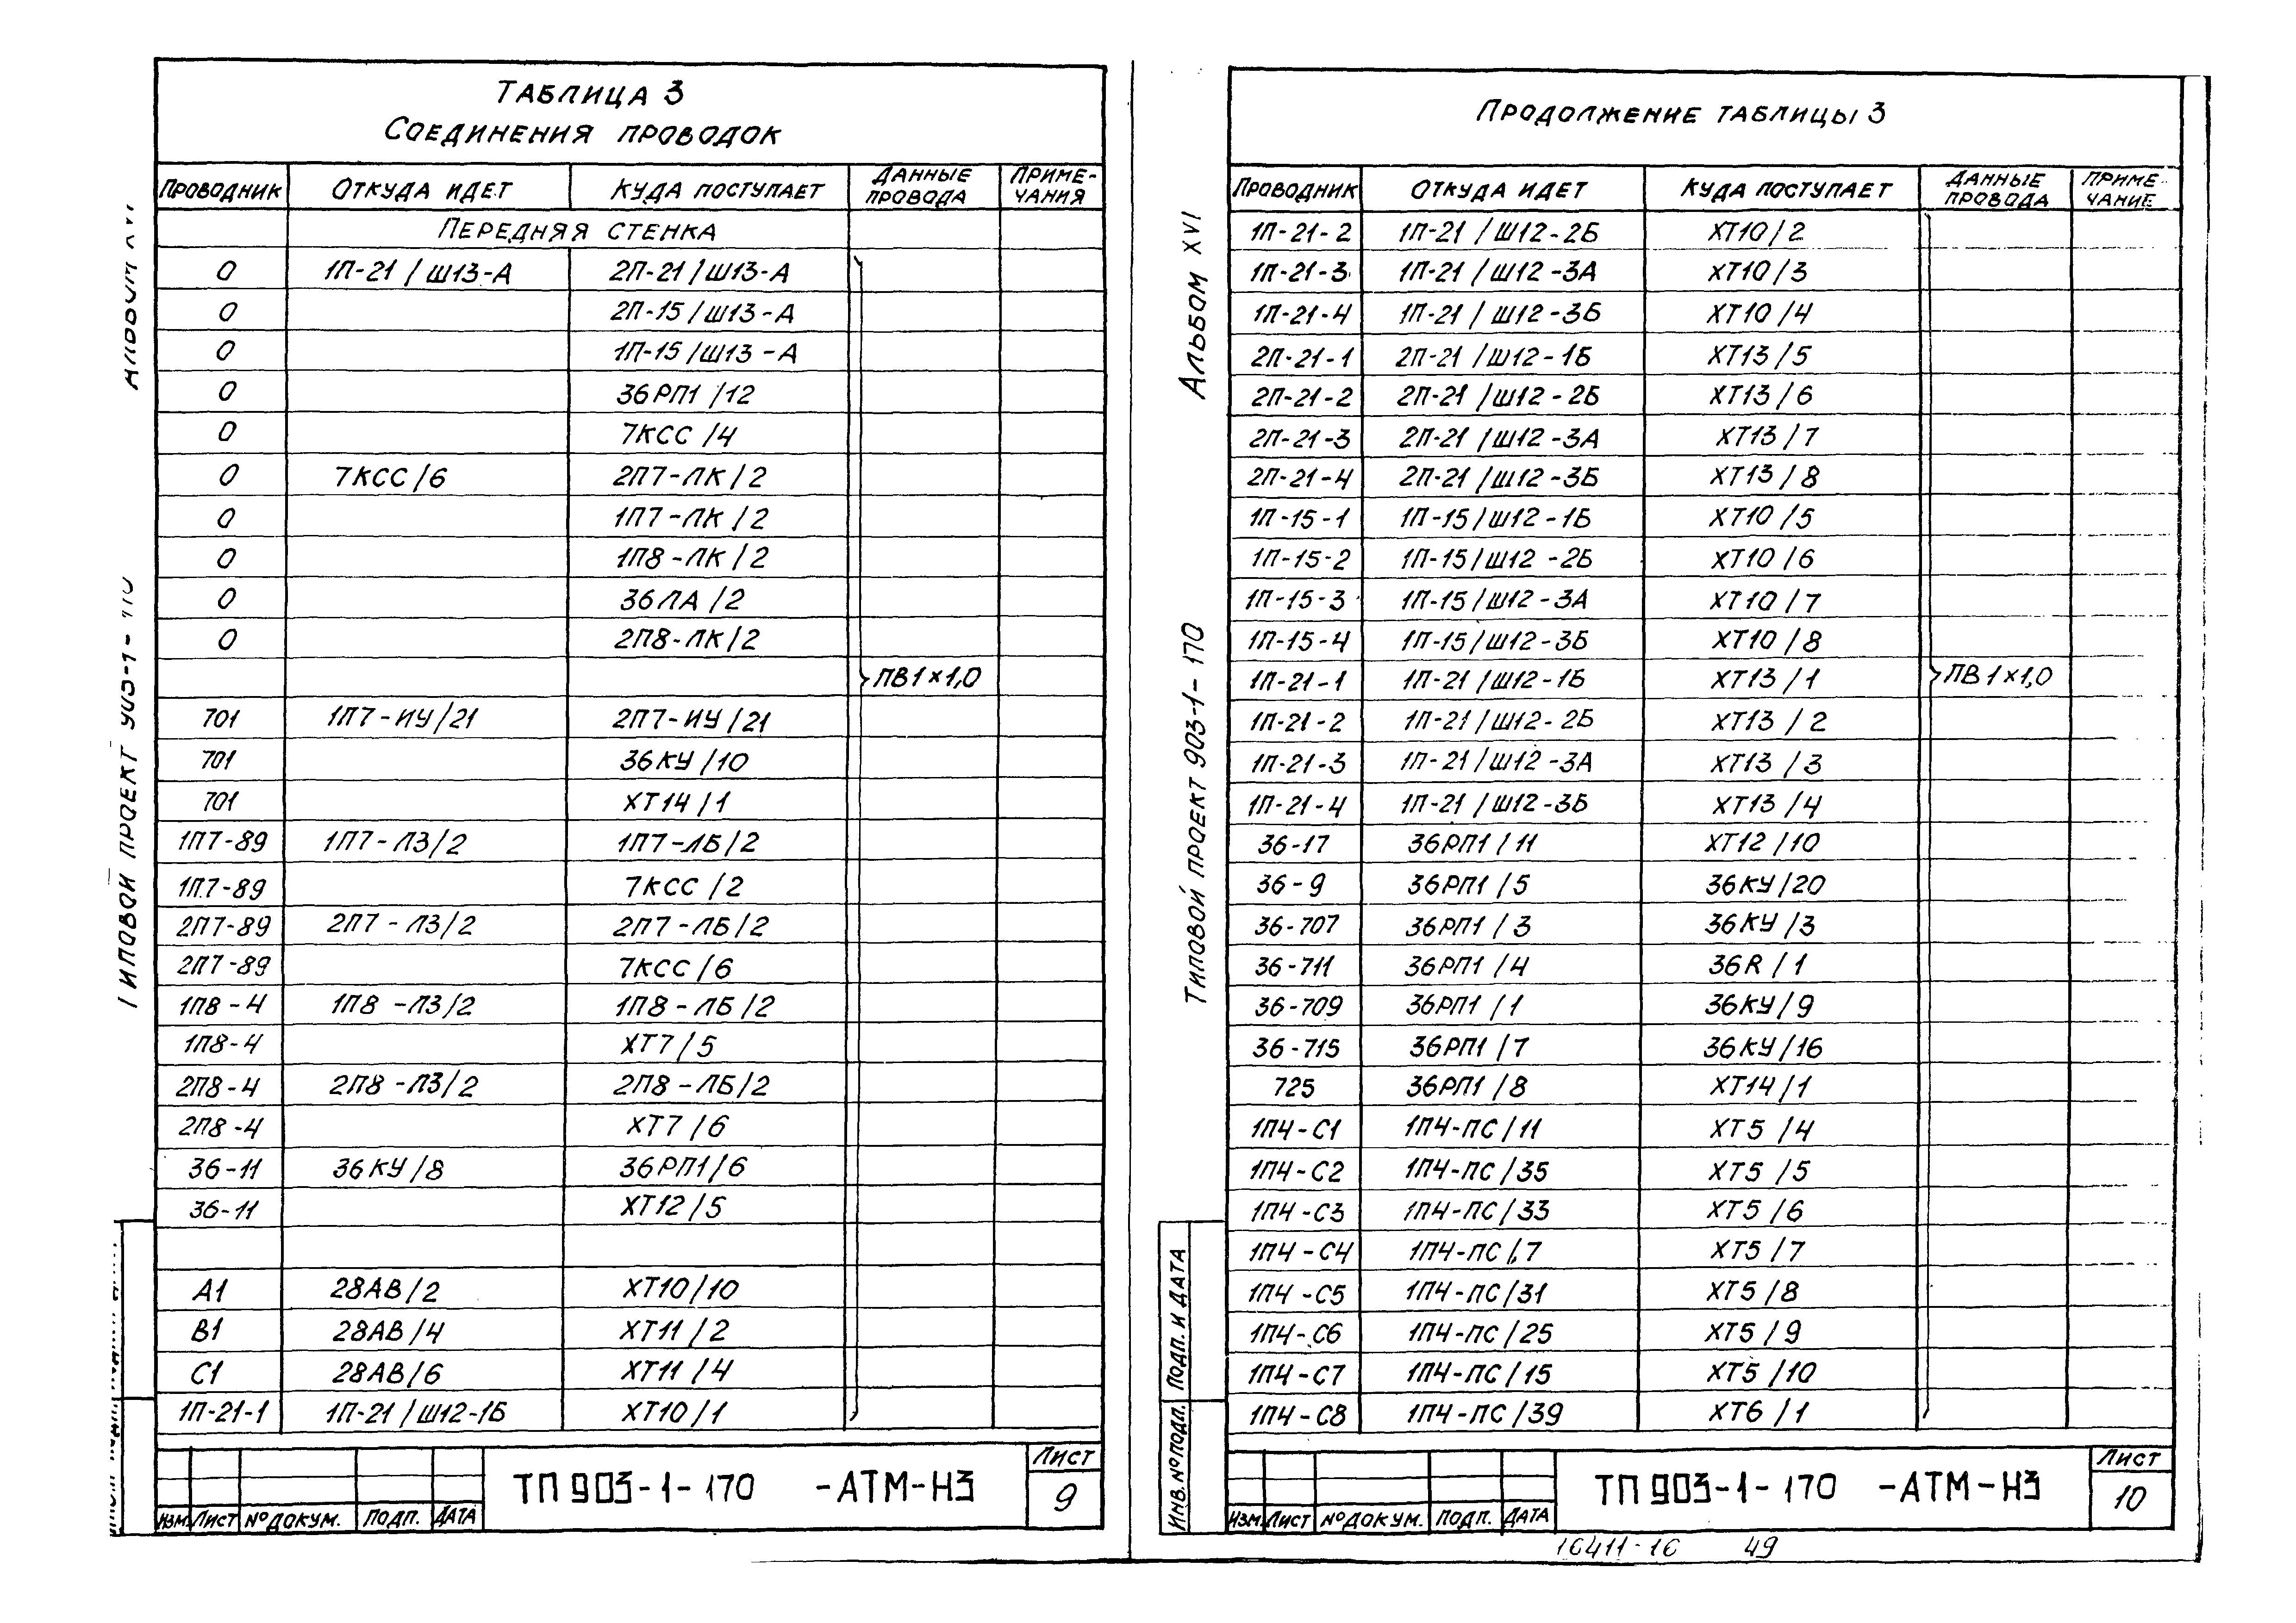 Таблица 3
Соединения проводок
Проводник Откуда идет Куда поступает Данные провода Примечания
Передняя стенка
0 1П-21/Ш13-А 2П-21/Ш13-А
0 2П-15/Ш13-А
0 1П-15/Ш13-А
0 36РП1/12
0 7КСС/4
0 7КСС/6 2П7-ЛК/2
0 1П7-ЛК/2
0 1П8-ЛК/2
0 36ЛА/2
0 2П8-ЛК/2
ПВ1×1,0
701 1П7-ИУ/21 2П7-ИУ/21
701 36КУ/10
701 ХТ14/1
1П7-89 1П7-Л3/2 1П7-ЛБ/2
1П7-89 7КСС/2
2П7-89 2П7-Л3/2 2П7-ЛБ/2
2П7-89 7КСС/6
1П8-4 1П8-Л3/2 1П8-ЛБ/2
1П8-4 ХТ7/5
2П8-4 2П8-Л3/2 2П8-ЛБ/2
2П8-4 ХТ7/6
36-11 36КУ/8 36РП1/6
36-11 ХТ12/5
А1 28АВ/2 ХТ10/10
В1 28АВ/4 ХТ11/2
С1 28АВ/6 ХТ11/4
1П-21-1 1П-21/Ш12-1Б ХТ10/1
Изм. Лист № докум. Подп. Дата
ТП 903-1-170 -АТМ-Н3
Лист
9
Типовой проект 903-1-170 Альбом XVI
Продолжение таблицы 3
Проводник Откуда идет Куда поступает Данные провода Примечание
1П-21-2 1П-21/Ш12-2Б ХТ10/2
1П-21-3 1П-21/Ш12-3А ХТ10/3
1П-21-4 1П-21/Ш12-3Б ХТ10/4
2П-21-1 2П-21/Ш12-1Б ХТ13/5
2П-21-2 2П-21/Ш12-2Б ХТ13/6
2П-21-3 2П-21/Ш12-3А ХТ13/7
2П-21-4 2П-21/Ш12-3Б ХТ13/8
1П-15-1 1П-15/Ш12-1Б ХТ10/5
1П-15-2 1П-15/Ш12-2Б ХТ10/6
1П-15-3 1П-15/Ш12-3А ХТ10/7
1П-15-4 1П-15/Ш12-3Б ХТ10/8
1П-21-1 1П-21/Ш12-1Б ХТ13/1 ПВ1×1,0
1П-21-2 1П-21/Ш12-2Б ХТ13/2
1П-21-3 1П-21/Ш12-3А ХТ13/3
1П-21-4 1П-21/Ш12-3Б ХТ13/4
36-17 36РП1/11 ХТ12/10
36-9 36РП1/5 36КУ/20
36-707 36РП1/3 36КУ/3
36-711 36РП1/4 36R/1
36-709 36РП1/1 36КУ/9
36-715 36РП1/7 36КУ/16
725 36РП1/8 ХТ14/1
1П4-С1 1П4-ПС/11 ХТ5/4
1П4-С2 1П4-ПС/35 ХТ5/5
1П4-С3 1П4-ПС/33 ХТ5/6
1П4-С4 1П4-ПС/7 ХТ5/7
1П4-С5 1П4-ПС/31 ХТ5/8
1П4-С6 1П4-ПС/25 ХТ5/9
1П4-С7 1П4-ПС/15 ХТ5/10
1П4-С8 1П4-ПС/39 ХТ6/1
Изм. Лист № докум. Подп. Дата
ТП 903-1-170 -АТМ-Н3
Лист
10
Типовой проект 903-1-170 Альбом XVI
Инв. № подл. Подп. и дата
16411-16 49